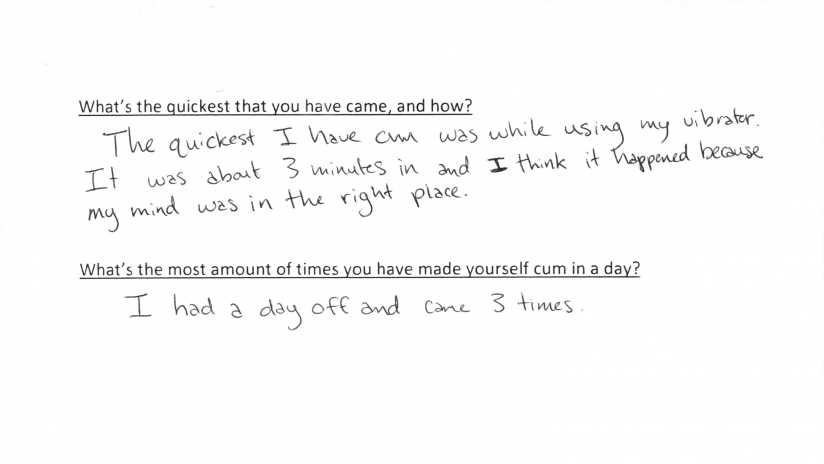 What's the quickest that you have came, and how?
The quickest I have cum was while using my vibrator.
It was about 3 minutes in and I think it happened because
my mind was in the right place.
What's the most amount of times you have made yourself cum in a day?
I had a day off and came 3 times.